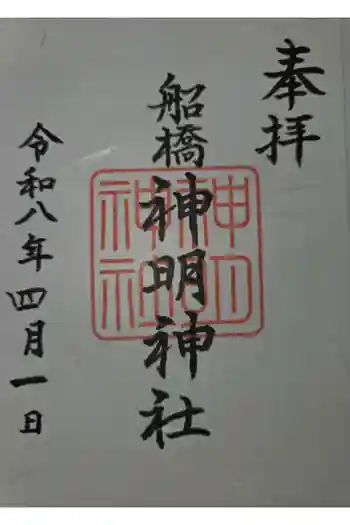 奉拝
船橋神明神社
令和八年四月一日